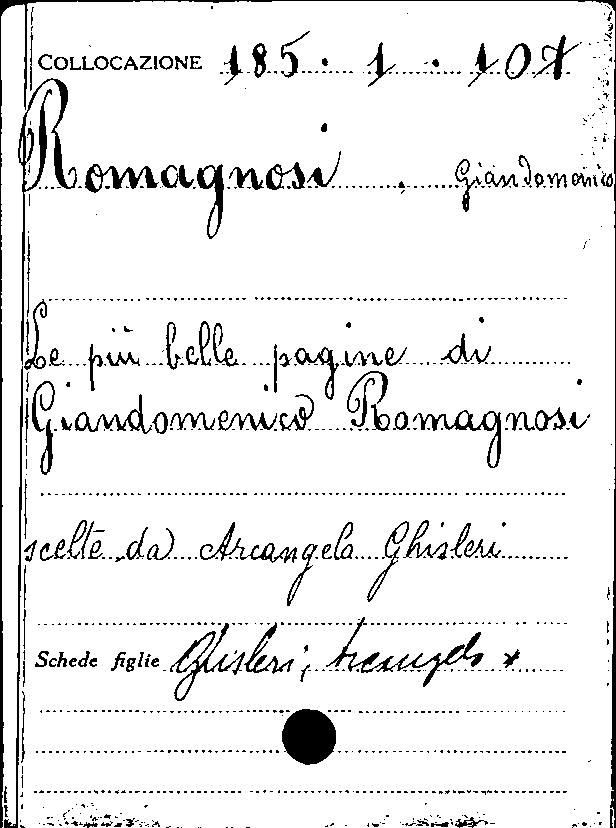 COLLOCAZIONE 185 . 1 . 107
Romagnosi . Giandomenico
Le più belle pagine di
Giandomenico Romagnosi
scelte da Arcangelo Ghisleri
Schede figlie Ghisleri, Arcangelo *